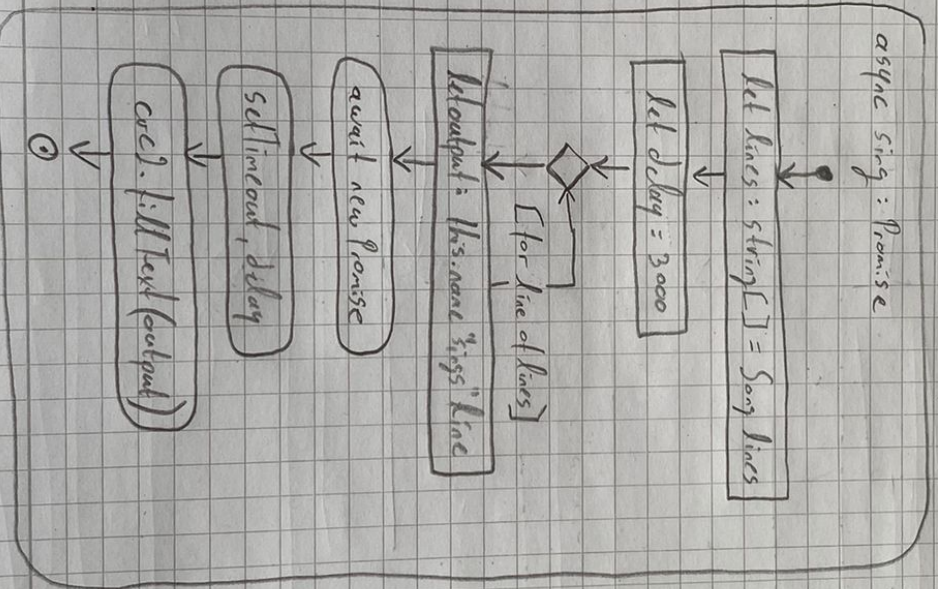 async sing : Promise
let lines : string[] = Song lines
let delay = 3000
[for line of lines]
let output = this.name "sings" line
await new Promise
setTimeout, delay
crc2.fillText(output)